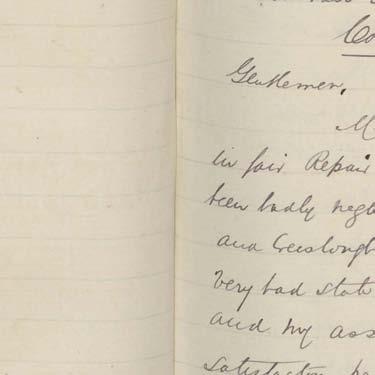 Co
Gentlemen,
M
in fair Repair
been badly negle
and
very bad state
and my ass
satisfaction ha